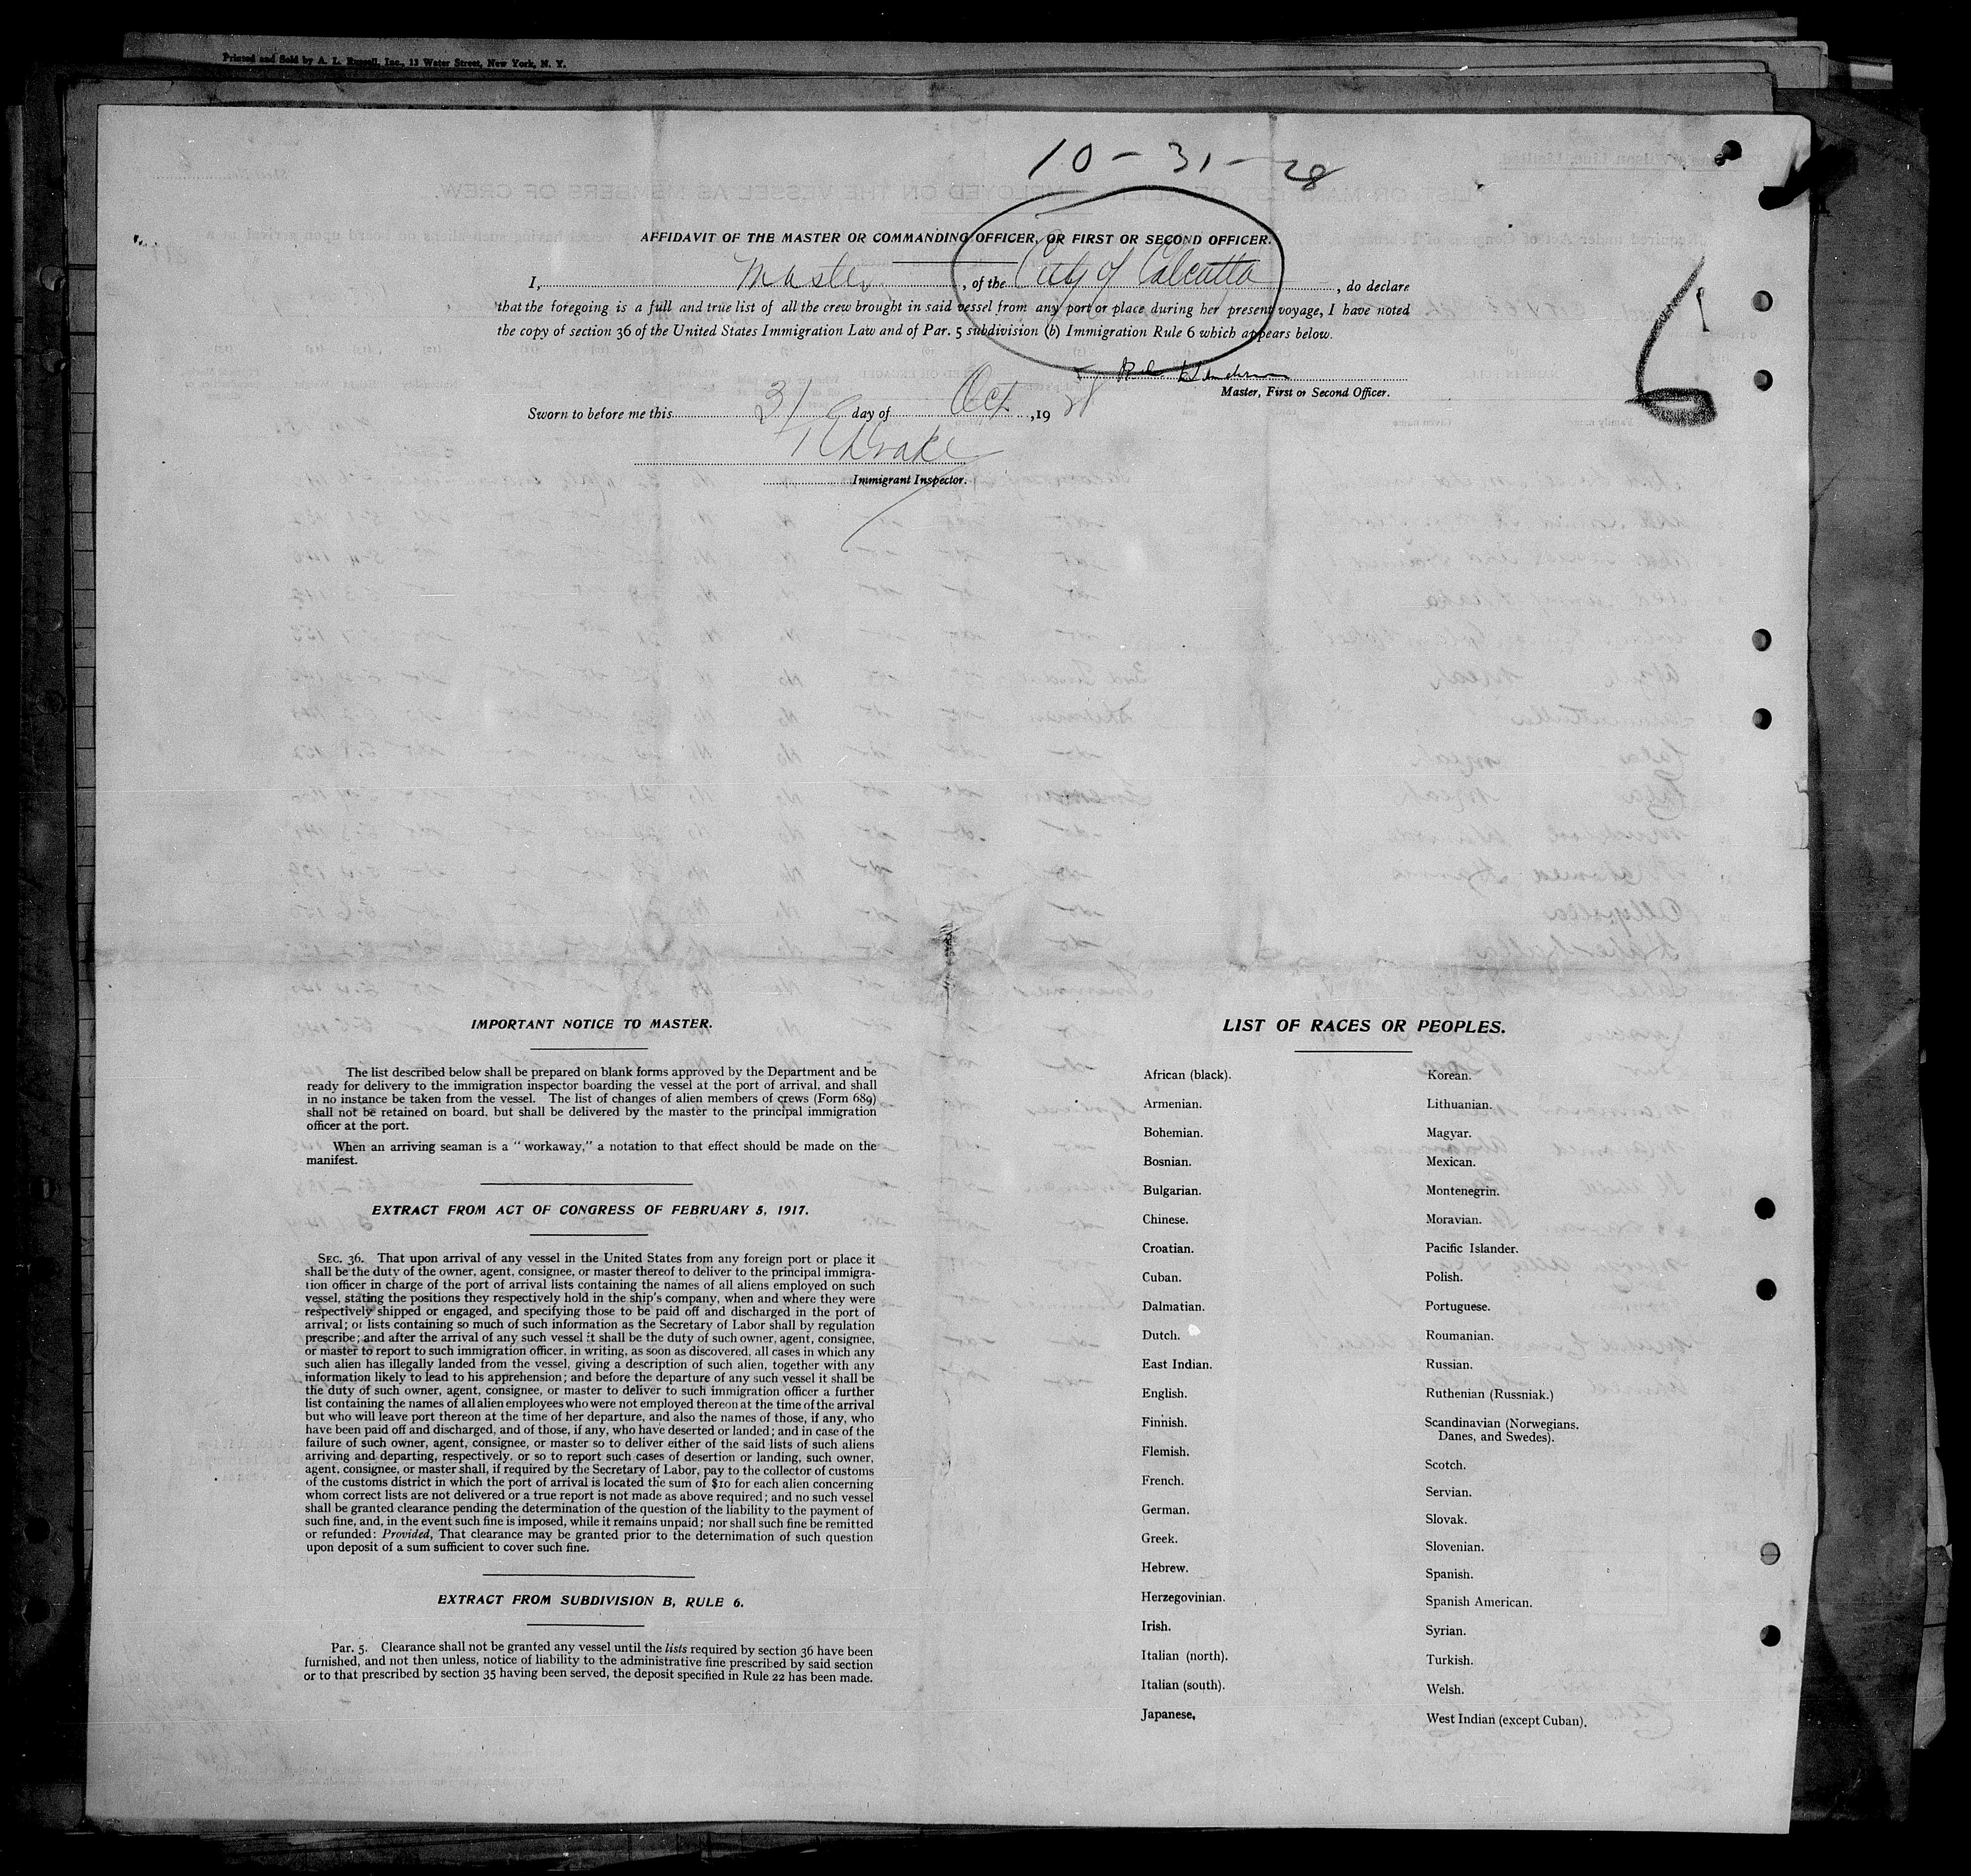 Printed and Sold by A. L. Russell, Inc., 13 Water Street, New York, N. Y.
10-31-28
AFFIDAVIT OF THE MASTER OR COMMANDING OFFICER, OR FIRST OR SECOND OFFICER.
I, Master, of the City of Calcutta, do declare
that the foregoing is a full and true list of all the crew brought in said vessel from any port or place during her present voyage, I have noted
the copy of section 36 of the United States Immigration Law and of Par. 5 subdivision (b) Immigration Rule 6 which appears below.
Master, First or Second Officer.
Sworn to before me this 31 day of Oct, 19 28
Drake
Immigrant Inspector.
6
IMPORTANT NOTICE TO MASTER.
The list described below shall be prepared on blank forms approved by the Department and be
ready for delivery to the immigration inspector boarding the vessel at the port of arrival, and shall
in no instance be taken from the vessel. The list of changes of alien members of crews (Form 689)
shall not be retained on board, but shall be delivered by the master to the principal immigration
officer at the port.
When an arriving seaman is a "workaway," a notation to that effect should be made on the
manifest.
EXTRACT FROM ACT OF CONGRESS OF FEBRUARY 5, 1917.
SEC. 36. That upon arrival of any vessel in the United States from any foreign port or place it
shall be the duty of the owner, agent, consignee, or master thereof to deliver to the principal immigra-
tion officer in charge of the port of arrival lists containing the names of all aliens employed on such
vessel, stating the positions they respectively hold in the ship's company, when and where they were
respectively shipped or engaged, and specifying those to be paid off and discharged in the port of
arrival; or lists containing so much of such information as the Secretary of Labor shall by regulation
prescribe; and after the arrival of any such vessel it shall be the duty of such owner, agent, consignee,
or master to report to such immigration officer, in writing, as soon as discovered, all cases in which any
such alien has illegally landed from the vessel, giving a description of such alien, together with any
information likely to lead to his apprehension; and before the departure of any such vessel it shall be
the duty of such owner, agent, consignee, or master to deliver to such immigration officer a further
list containing the names of all alien employees who were not employed thereon at the time of the arrival
but who will leave port thereon at the time of her departure, and also the names of those, if any, who
have been paid off and discharged, and of those, if any, who have deserted or landed; and in case of the
failure of such owner, agent, consignee, or master so to deliver either of the said lists of such aliens
arriving and departing, respectively, or so to report such cases of desertion or landing, such owner,
agent, consignee, or master shall, if required by the Secretary of Labor, pay to the collector of customs
of the customs district in which the port of arrival is located the sum of $10 for each alien concerning
whom correct lists are not delivered or a true report is not made as above required; and no such vessel
shall be granted clearance pending the determination of the question of the liability to the payment of
such fine, and, in the event such fine is imposed, while it remains unpaid; nor shall such fine be remitted
or refunded: Provided, That clearance may be granted prior to the deternimation of such question
upon deposit of a sum sufficient to cover such fine.
EXTRACT FROM SUBDIVISION B, RULE 6.
Par. 5. Clearance shall not be granted any vessel until the lists required by section 36 have been
furnished, and not then unless, notice of liability to the administrative fine prescribed by said section
or to that prescribed by section 35 having been served, the deposit specified in Rule 22 has been made.
LIST OF RACES OR PEOPLES.
African (black).
Armenian.
Bohemian.
Bosnian.
Bulgarian.
Chinese.
Croatian.
Cuban.
Dalmatian.
Dutch.
East Indian.
English.
Finnish.
Flemish.
French.
German.
Greek.
Hebrew.
Herzegovinian.
Irish.
Italian (north).
Italian (south).
Japanese,
Korean.
Lithuanian.
Magyar.
Mexican.
Montenegrin.
Moravian.
Pacific Islander.
Polish.
Portuguese.
Roumanian.
Russian.
Ruthenian (Russniak.)
Scandinavian (Norwegians.
Danes, and Swedes).
Scotch.
Servian.
Slovak.
Slovenian.
Spanish.
Spanish American.
Syrian.
Turkish.
Welsh.
West Indian (except Cuban).